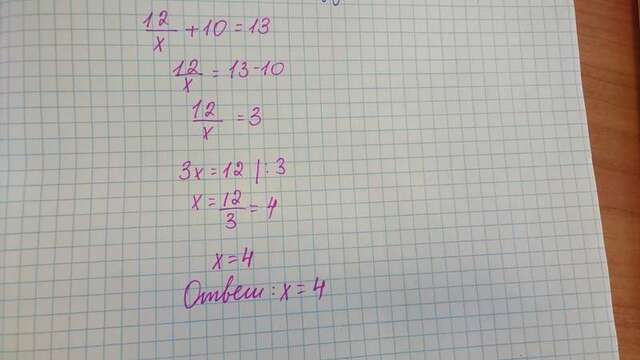 12/x + 10 = 13
12/x = 13 - 10
12/x = 3
3x = 12 | : 3
x = 12/3 = 4
x = 4
Ответ: x = 4